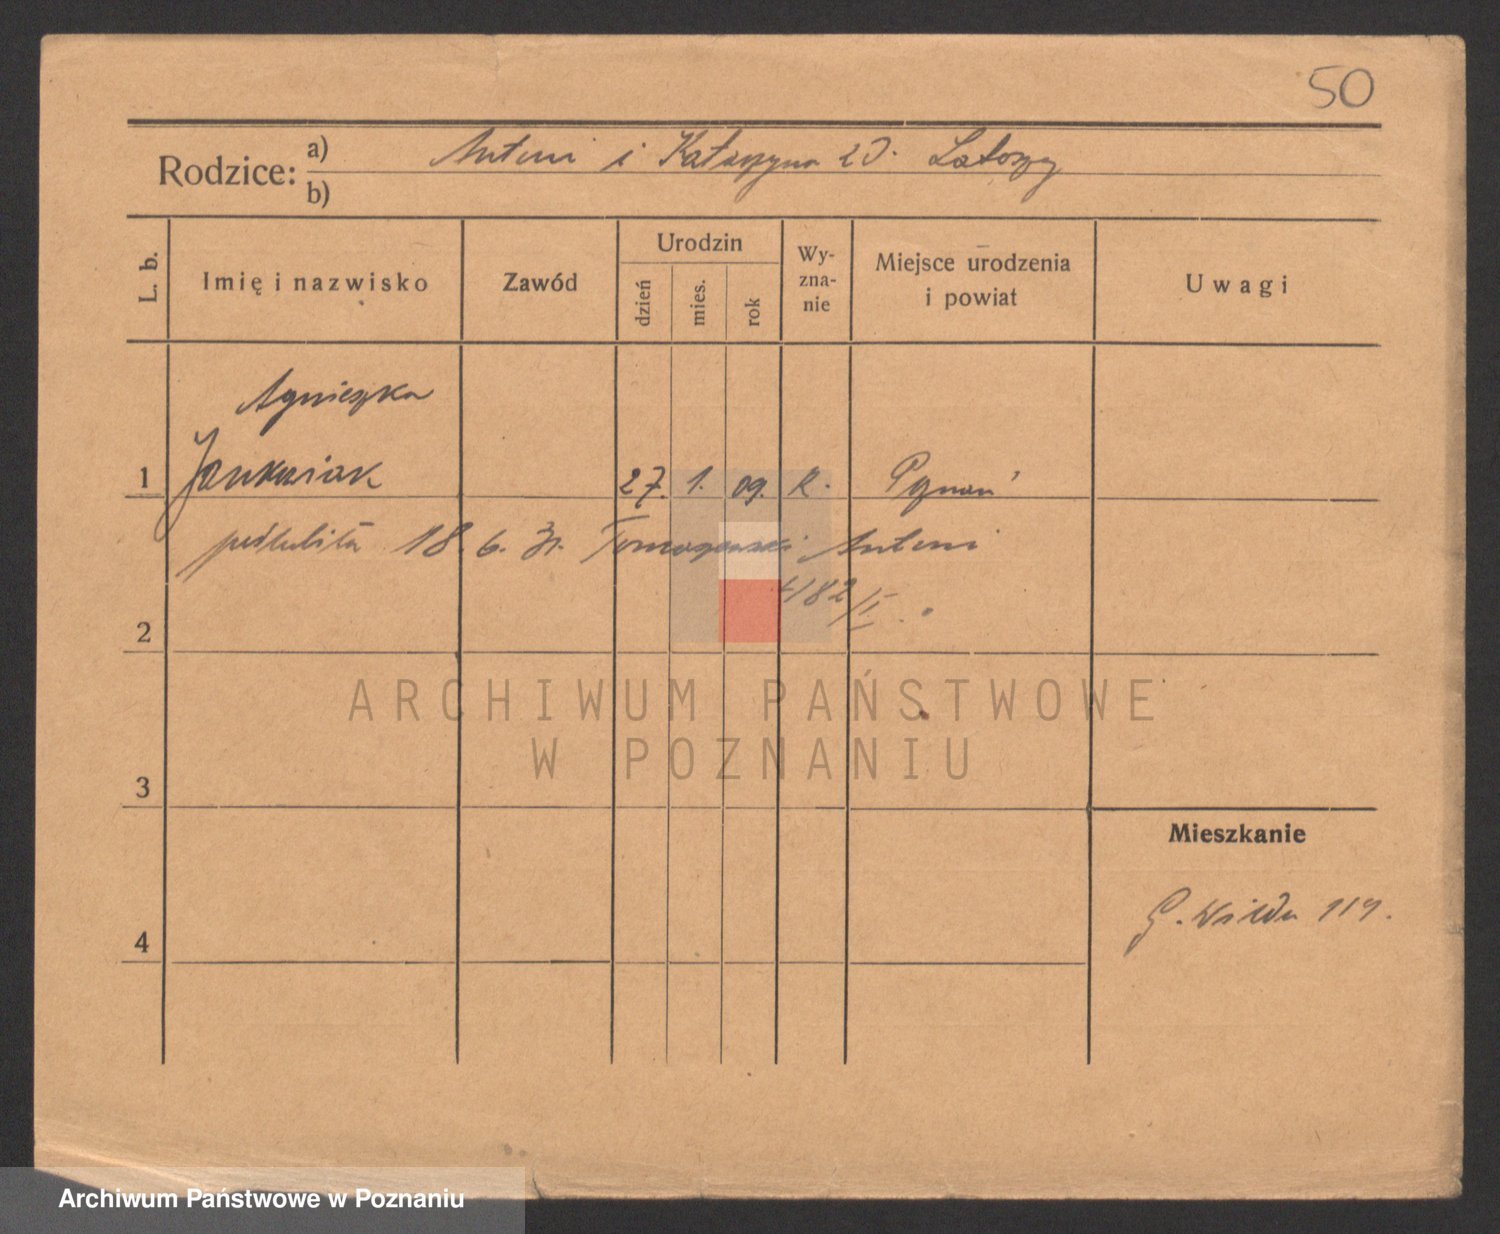 50
Rodzice: a) Antoni i Katarzyna zd. Latoszy
b)
L. b.
Imię i nazwisko
Zawód
Urodzin
dzień
mies.
rok
Wy-
zna-
nie
Miejsce urodzenia
i powiat
Uwagi
Agnieszka
1 Jankowiak 27. 1. 09. R. Poznań
poślubiła 18. 6. 31. Tomaszewski Antoni
4182/II.
2
3
Mieszkanie
G. Wilda 119.
4
ARCHIWUM PAŃSTWOWE
W POZNANIU
Archiwum Państwowe w Poznaniu